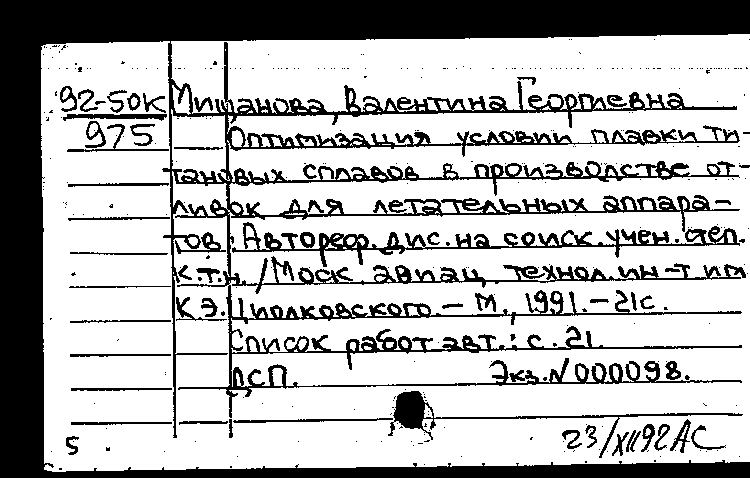 92-50к Мишанова, Валентина Георгиевна
975 Оптимизация условий плавки ти-
тановых сплавов в производстве от-
ливок для летательных аппара-
тов: Автореф. дис. на соиск. учен. степ.
к.т.н. / Моск. авиац. технол. ин-т им
К.Э. Циолковского. — М., 1991. — 21с.
Список работ авт.: с. 21.
ДСП. Экз. N 000098.
5 23/XII92 АС